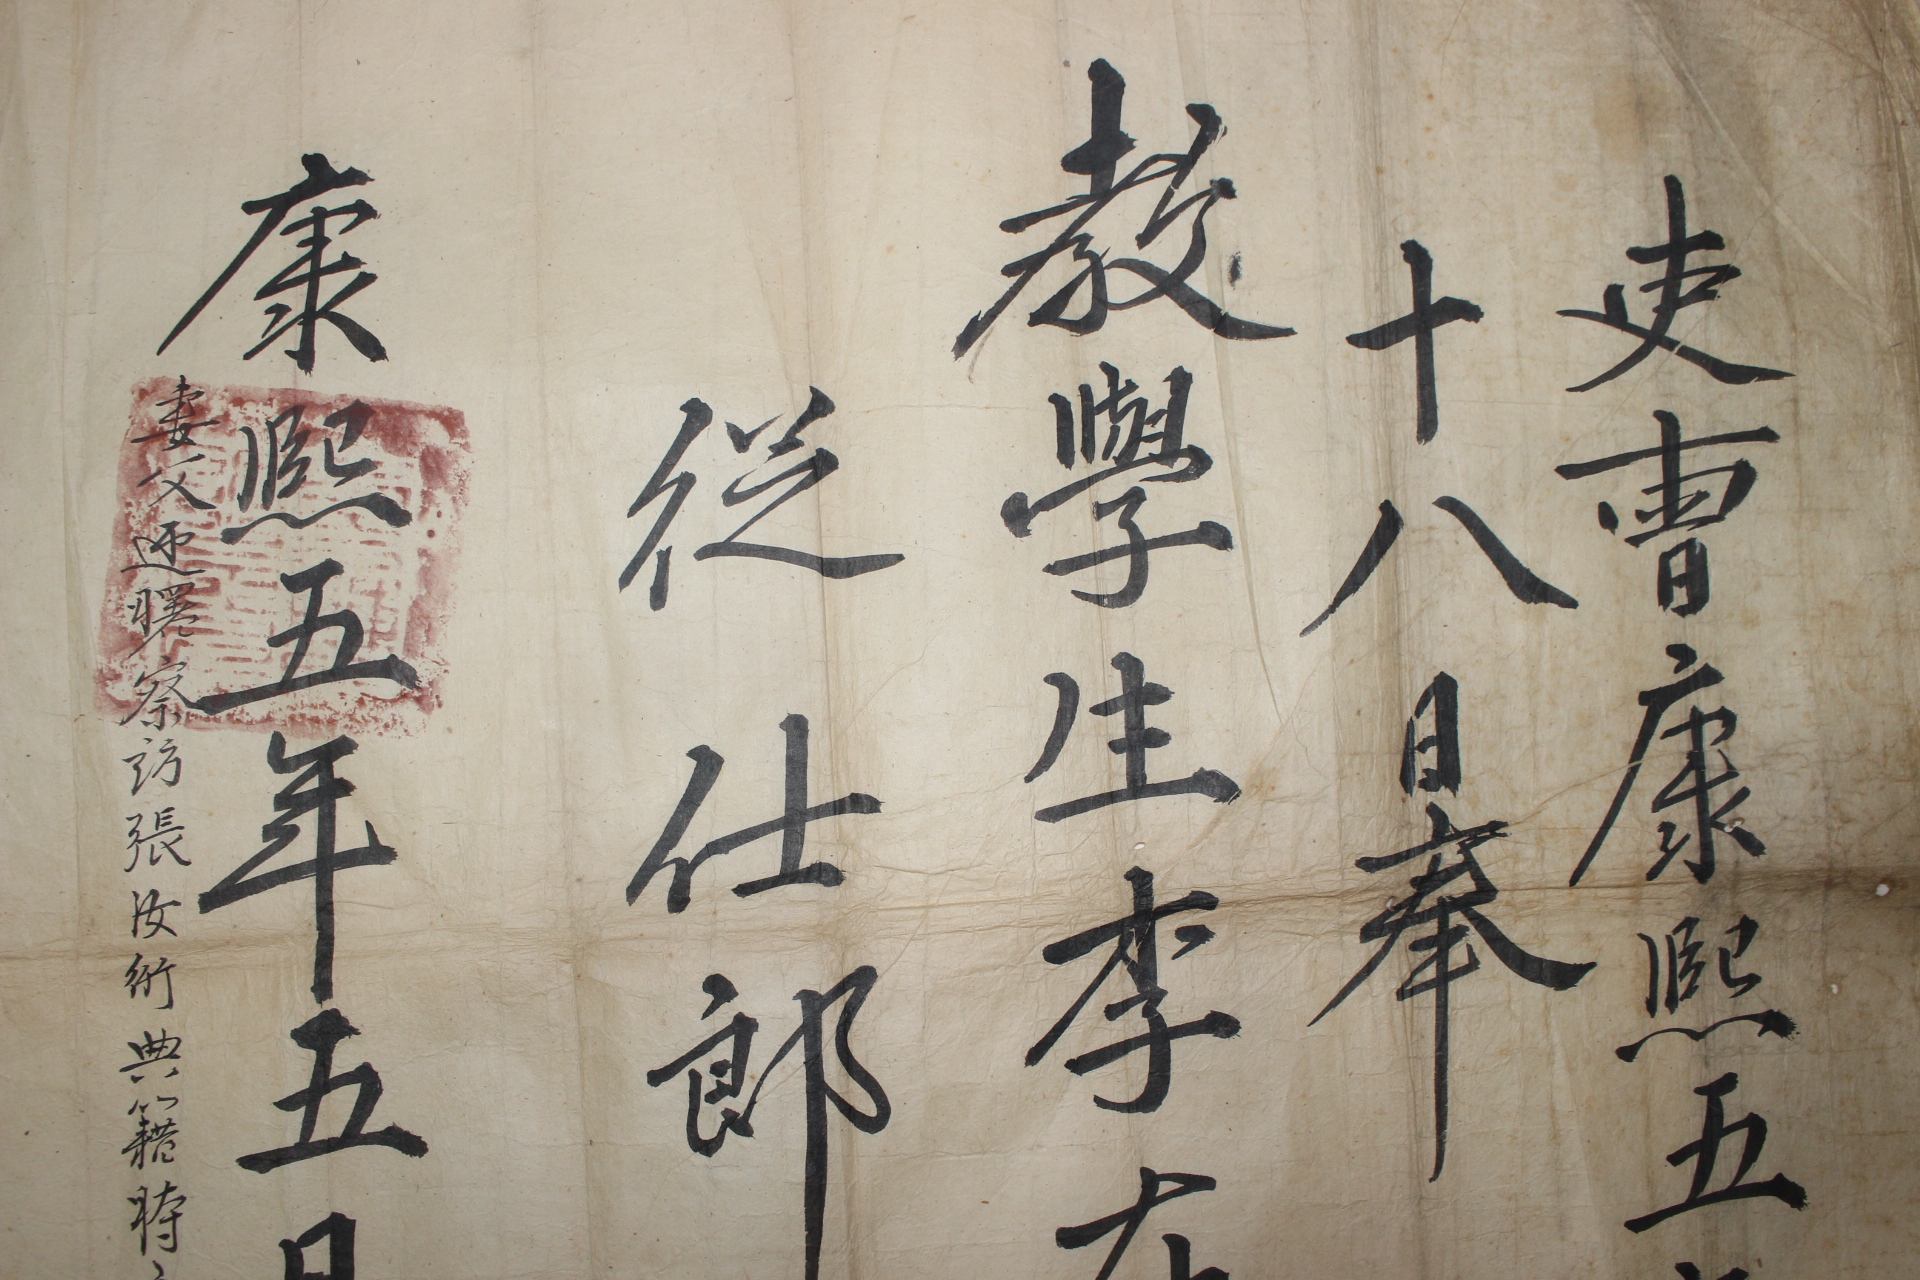 吏曺康熙五
十八日奉
教學生李
從仕郎
康熙五年五月
妻父 察訪張汝 典籍時